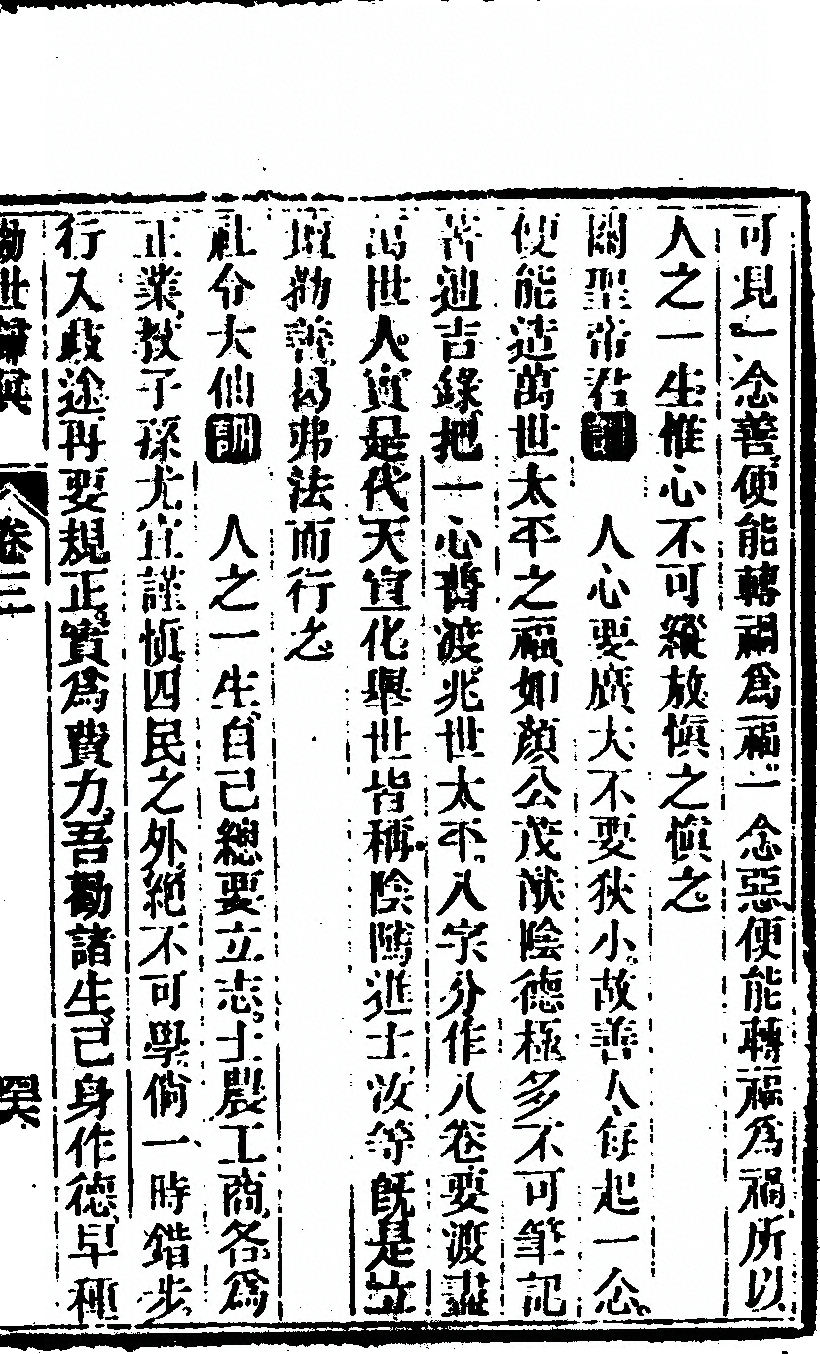 可見一念善便能轉禍爲福一念惡便能轉福爲禍所以
人之一生惟心不可縱放愼之愼之
關聖帝君訓 人心要廣大不要狹小故善人每起一念
便能造萬世太平之福如顏公茂猷陰德極多不可筆記
著迪吉錄把一心普渡兆世太平八字分作八卷要渡盡
萬世人實是代天宣化舉世皆稱陰隲進士汝等旣是立
壇勸善曷弗法而行之
社令大仙訓 人之一生自己總要立志士農工商各爲
正業教子孫尤宜謹愼四民之外絕不可學倘一時錯步
行入歧途再要規正實爲費力吾勸諸生己身作德早種
勸世歸眞 卷三